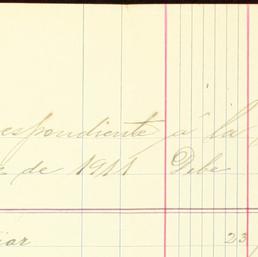 respondiente á la
de 1911 Debe
23